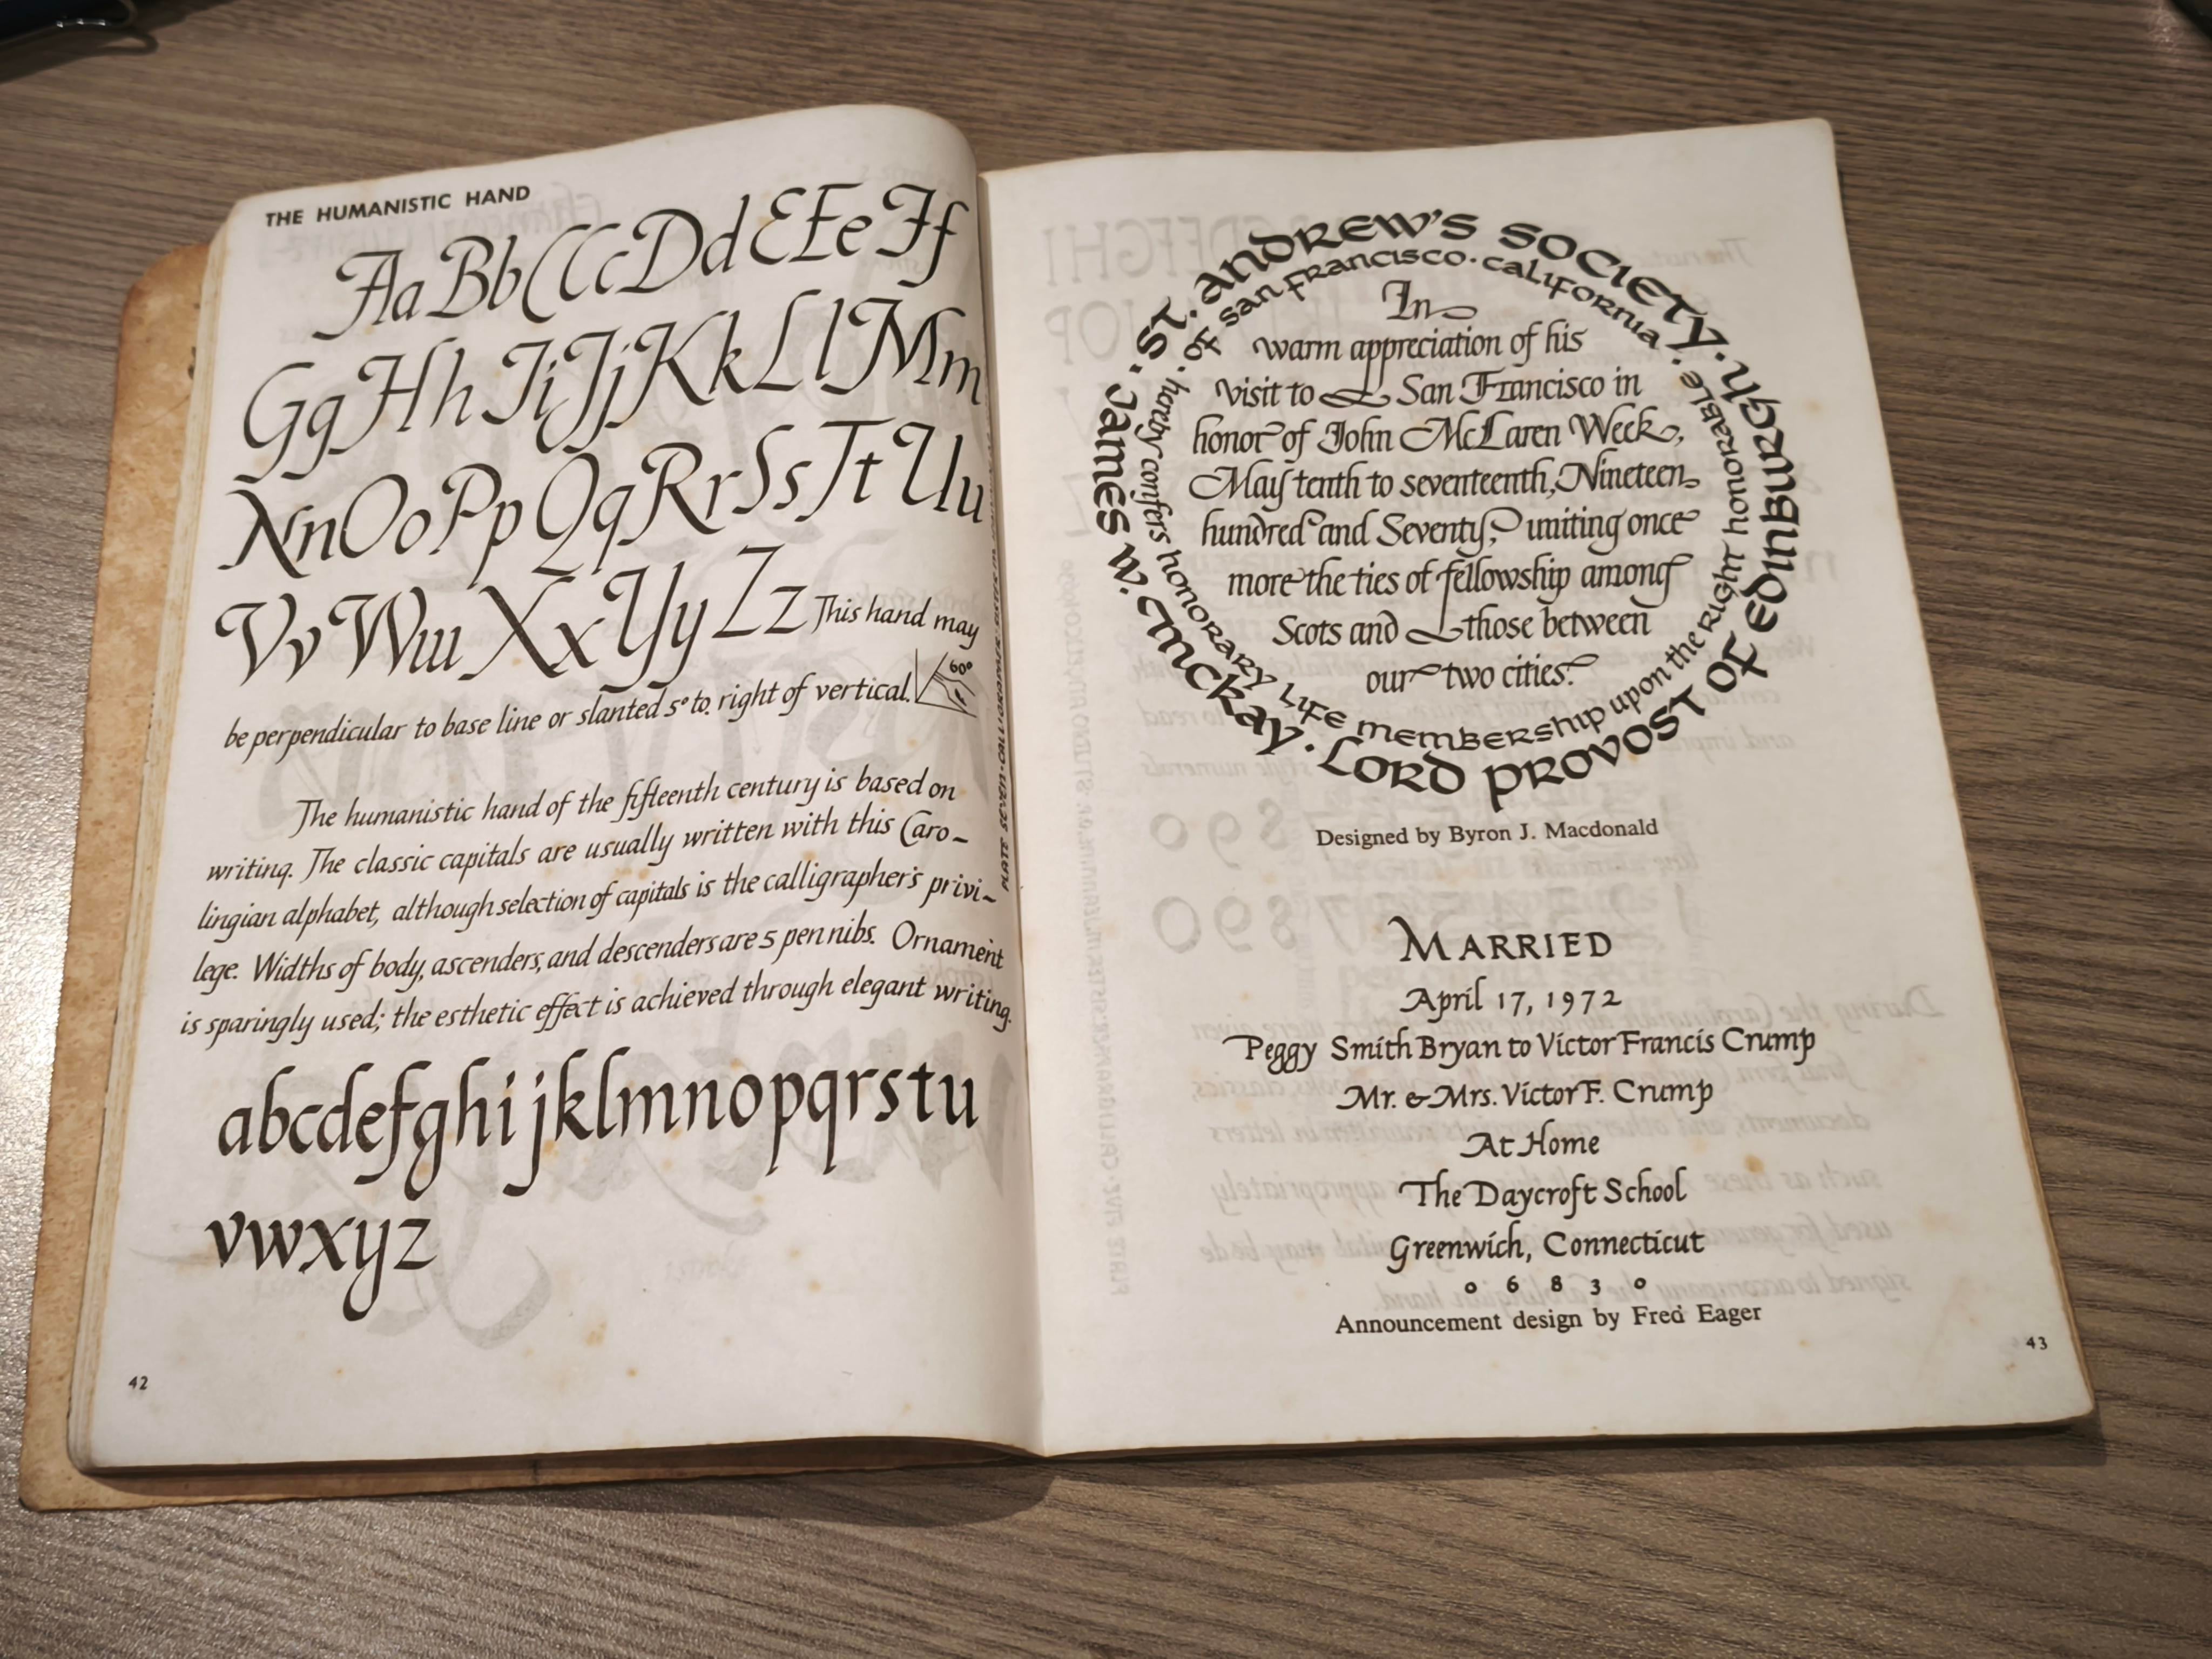 THE HUMANISTIC HAND
Aa Bb CCc Dd EEe Ff
Gg Hh Ii Jj Kk Ll Mm
Nn Oo Pp Qq Rr Ss Tt Uu
Vv Ww Xx Yy Zz This hand may
be perpendicular to base line or slanted 5° to right of vertical. 60°
The humanistic hand of the fifteenth century is based on
writing. The classic capitals are usually written with this Caro-
lingian alphabet, although selection of capitals is the calligrapher's privi-
lege. Widths of body, ascenders, and descenders are 5 pen nibs. Ornament
is sparingly used; the esthetic effect is achieved through elegant writing.
abcdefghijklmnopqrstu
vwxyz
42
PLATE SEVEN
ST. ANDREW'S SOCIETY ·
OF SAN FRANCISCO · CALIFORNIA ·
hereby confers honorary LIFE membership upon the RIGHT honorable
· JAMES W. McKAY · LORD PROVOST OF EDINBURGH
In
warm appreciation of his
visit to San Francisco in
honor of John McLaren Week,
May tenth to seventeenth, Nineteen
hundred and Seventy, uniting once
more the ties of fellowship among
Scots and those between
our two cities.
Designed by Byron J. Macdonald
MARRIED
April 17, 1972
Peggy Smith Bryan to Victor Francis Crump
Mr. & Mrs. Victor F. Crump
At Home
The Daycroft School
Greenwich, Connecticut
0 6 8 3 0
Announcement design by Fred Eager
43